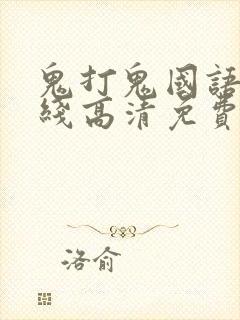 鬼打鬼國語
綫高清免費
洛俞